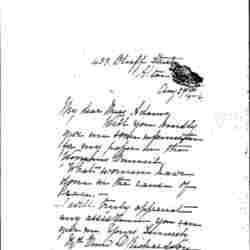 433, Bluff Street
Alton
Aug 27th
My dear Miss Adams,
Will you kindly
give me some information
for my paper in the
Woman's
What women have
done in the cause of
Peace. —
I will truly appreciate
any assistance you can
give me. Yours Sincerely
D. Richardson